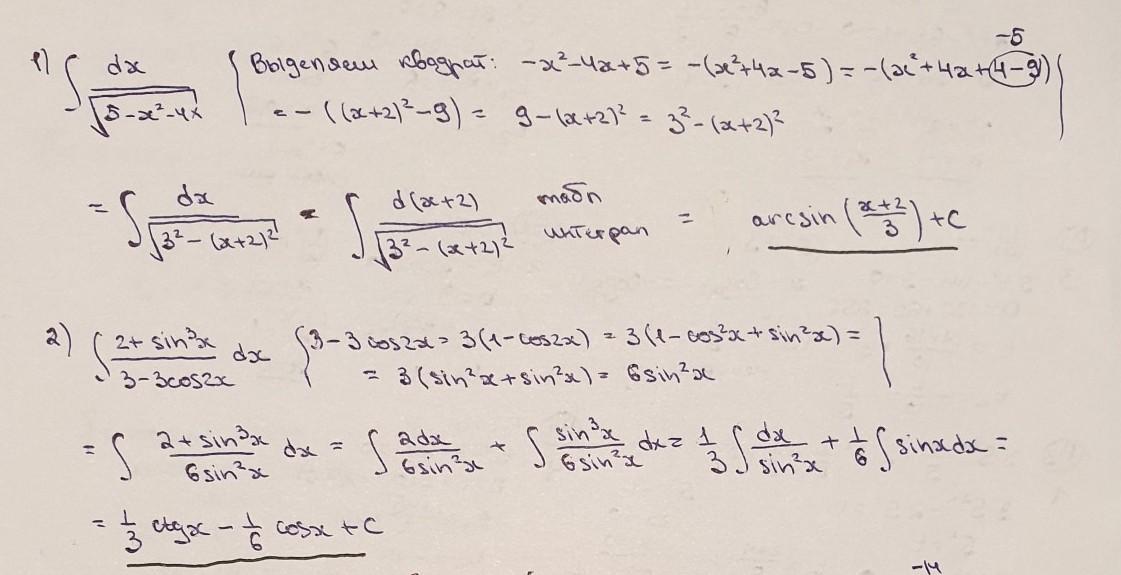 1) ∫ dx/√(5-x²-4x) { Выделяем квадрат: -x²-4x+5 = -(x²+4x-5) = -(x²+4x+4-9) -5
= -((x+2)²-9) = 9-(x+2)² = 3²-(x+2)² }
= ∫ dx/√(3²-(x+2)²) = ∫ d(x+2)/√(3²-(x+2)²) табл интеграл = arcsin((x+2)/3)+C
2) ∫ (2+sin³x)/(3-3cos2x) dx { 3-3cos2x = 3(1-cos2x) = 3(1-cos²x+sin²x) =
= 3(sin²x+sin²x) = 6sin²x }
= ∫ (2+sin³x)/(6sin²x) dx = ∫ 2dx/(6sin²x) + ∫ sin³x/(6sin²x) dx = 1/3 ∫ dx/sin²x + 1/6 ∫ sinxdx =
= 1/3 ctgx - 1/6 cosx + C
-14